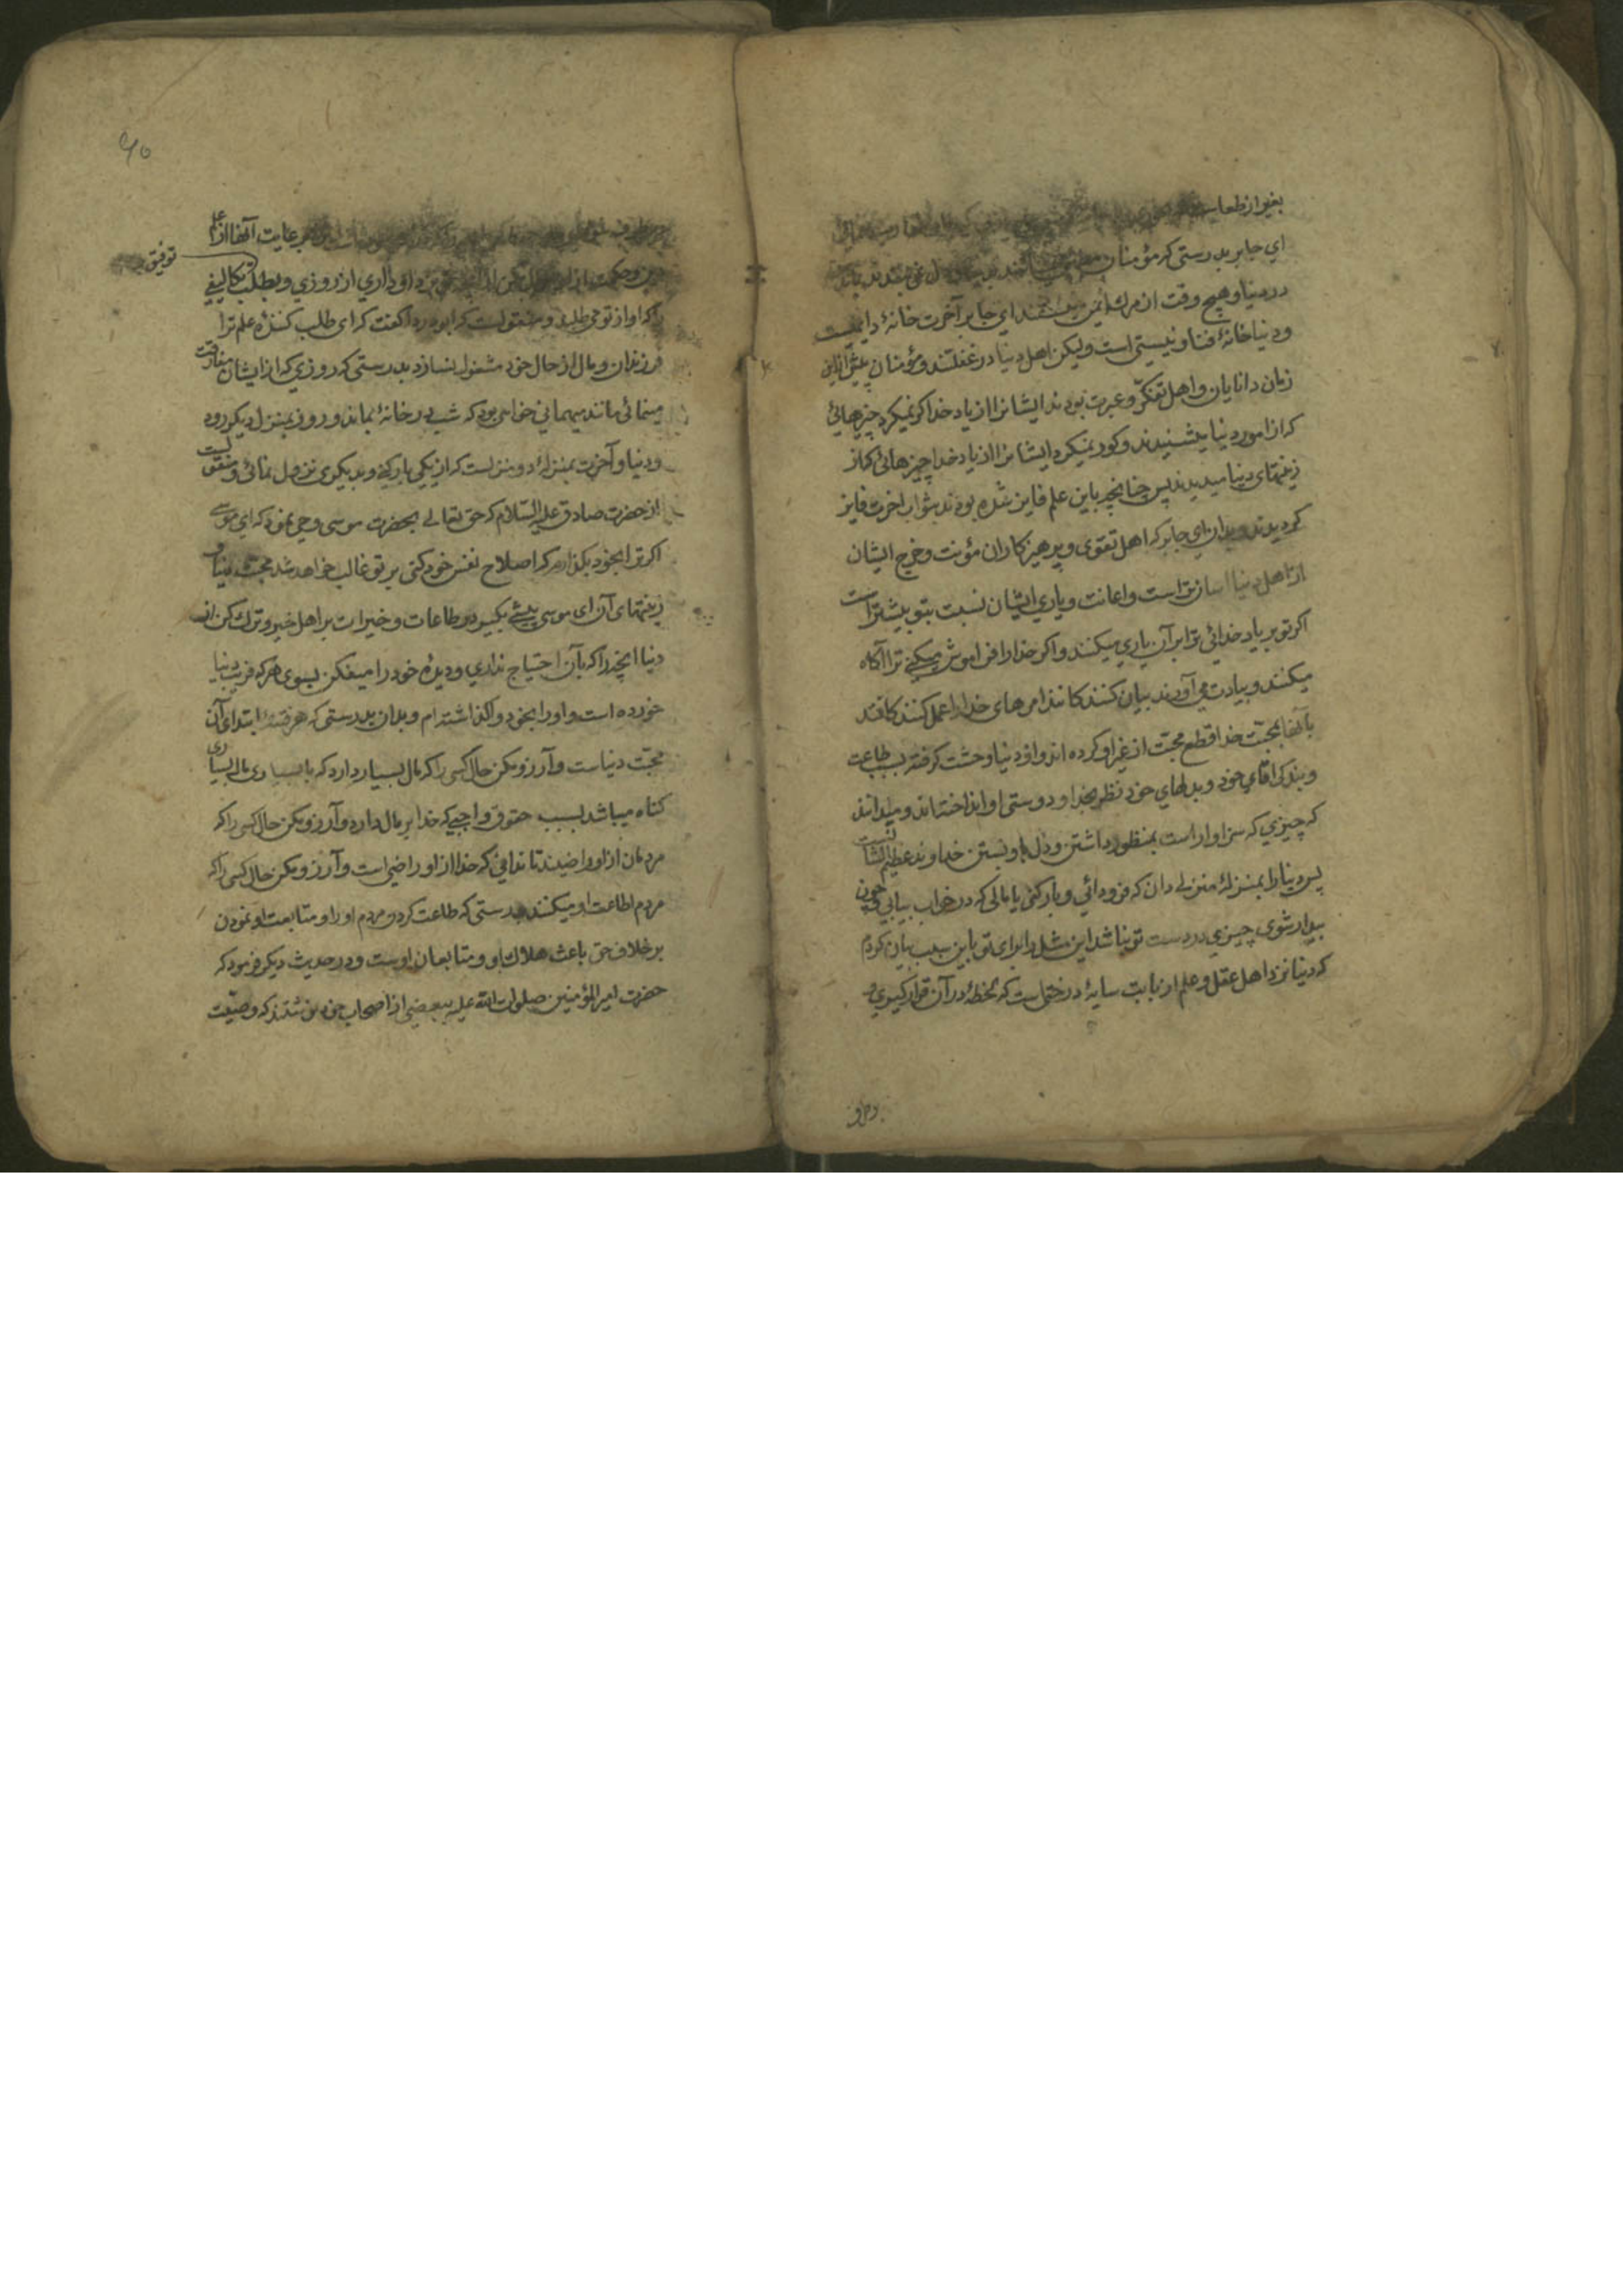 بغیر از طعا
ای جابر بدرستی که مؤمنان
در دنیا و هیچ وقت از مرك ایمن نمیباشند ای جابر آخرت خانهٔ دایمیست
و دنیا خانهٔ فنا و نیستی است و لیکن اهل دنیا در غفلتند و مؤمنان پیش ازین
زمان دانایان و اهل تفکّر و عبرت بودند ایشانرا از یاد خدا کر نمیکرد چیزهائی
که از امور دنیا میشنیدند و کور نمیکرد ایشانرا از یاد خدا چیزهائی که از
زینتهای دنیا میدیدند پس چنانچه باین علم فایز شده بودند بثواب اخرت فایز
کردیدند و بدان ای جابر که اهل تقوی و پرهیزکاران مؤنت و خرج ایشان
از اهل دنیا اسان تر است و اعانت و یاری ایشان نسبت بتو بیشتر است
اکر تو بر یاد خدائی ترا بر آن یاری میکنند و اکر خدا را فراموش میکنی ترا آکاه
میکنند و بیادت می آورند بیان کنندکانند امرهای خدا را عمل کنندکانند
بآنها بمحبّت خدا قطع محبّت از غیر او کرده اند و از دنیا وحشت کرفته بسبب طاعت
و بندکی اقای خود و بدلهای خود نظر بخدا و دوستی او انداخته اند و میدانند
که چیزی که سزاوار است بمنظور داشتن و دل باو بستن خداوند عظیم الشانست
پس دنیا را بمنزلهٔ منزلی دان که فرود آئی و بار کنی یا مالی که در خواب بیابی و چون
بیدار شوی چیزی در دست تو نباشد این مثل را برای تو باین سبب بیان کردم
که دنیا نزد اهل عقل و علم از بابت سایهٔ درختی است که لحظهٔ در آن قرار کیری و
رعایت آنها از
توفیق
نزد او داری از روزی و بطلب تکالیفی
را که او از تو می طلبد و منقولست که ابوذر ره کفت که ای طلب کنندهٔ علم ترا
فرزندان و مال از حال خود مشغول نسازد بدرستی که روزی که از ایشان مفارقت
مینمائی مانند میهمانی خواهی بود که شب در خانهٔ بماند و روز بمنزل دیکر رود
و دنیا و آخرت بمنزلهٔ دو منزلست که از یکی بار کنی و بدیکری نزول نمائی و منقولست
از حضرت صادق علیه السّلام که حق تعالی بحضرت موسی وحی نمود که ای موسی
اکر ترا بخود بکذارم که اصلاح نفس خود کنی بر تو غالب خواهد شد محبّت دنیا و
زینتهای آن ای موسی پیشی بکیر در طاعات و خیرات بر اهل خیر و ترك کن از
دنیا آنچه را که بآن احتیاج نداری و دیدهٔ خود را میفکن بسوی هر که فریب دنیا
خورده است و او را بخود واکذاشته ام و بدان بدرستی که هر فتنهٔ ابتدای آن
محبّت دنیاست و آرزو مکن حال کسی را که مال بسیار دارد که با بسیاری مال بسیاری
کناه میباشد بسبب حقوق واجبی که خدا بر مال دارد و آرزو مکن حال کسی را که
مردمان از او راضیند تا ندانی که خدا از او راضی است و آرزو مکن حال کسی را که
مردم اطاعت او میکنند بدرستی که طاعت کردن مردم او را و متابعت او نمودن
بر خلاف حق باعث هلاك او و متابعان اوست و در حدیث دیکر فرمود که
حضرت امیر المؤمنین صلوات الله علیه ببعضی از اصحاب خود نوشتند که وصیّت